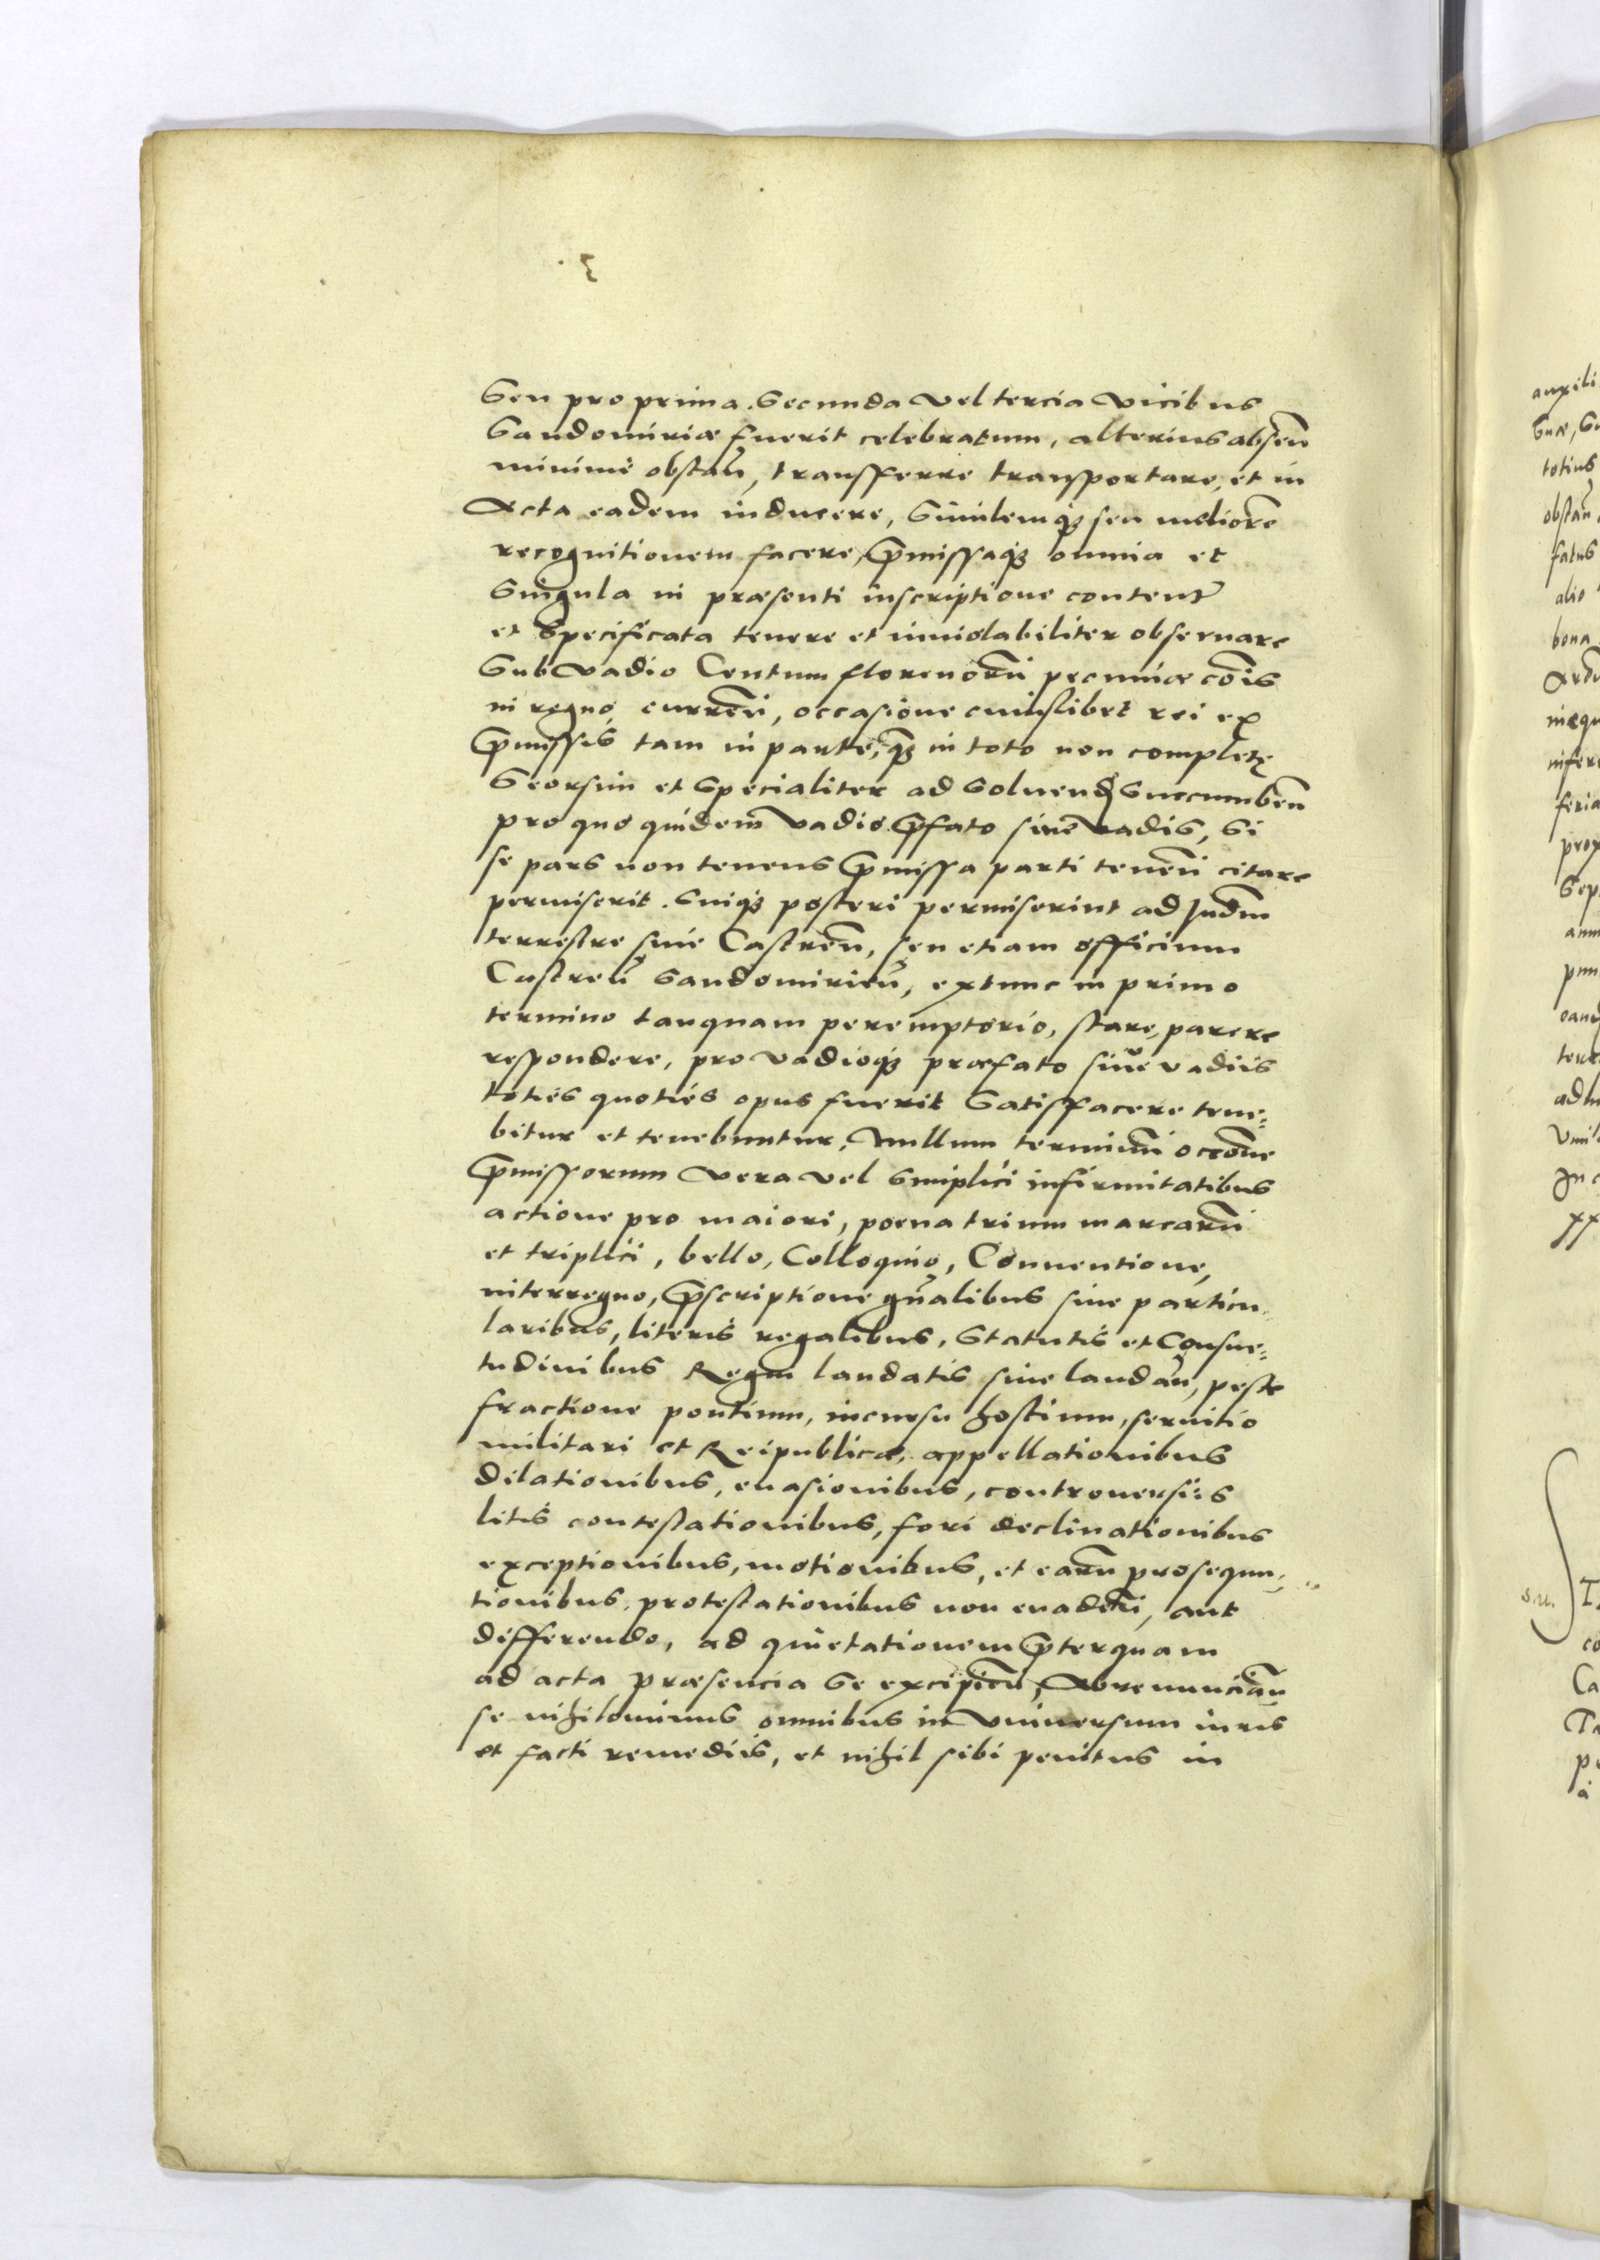 Seu pro prima. Secunda vel tercia vicibus
Sandomiriæ fuerit celebratum, alterius absen̄
minimè obstan̄, transfferre transportare, et in
Acta eadem inducere, Similemq₃ seu meliorē
recognitionem facere, p̄missaq₃ omnia et
Singula in præsenti inscriptione content̄
et Specificata tenere et inviolabiliter obseruare
Sub vadio Centum florenorū pecuniæ cōis
in regno curren̄, occasione cuiuslibet rei ex
p̄missis tam in parte, q̄₃ in toto non complete
Seorsim et Specialiter ad Soluend̄ Succumben̄
pro quo quidem vadio p̄fato siue vadiis, Si
se pars non tenens p̄missa parti tenen̄ citare
permiserit. Suiq₃ posteri permiserint ad Judm̄
terrestre siue Castren̄, seu etiam officium
Castren̄ Sandomirien̄, extunc in primo
termino tanquam peremptorio, stare, parere
respondere, pro vadioq₃ præfato siue vadiis
toties quoties opus fuerit Satisffacere tene=
bitur et tenebuntur, Nullum terminū occōne
p̄missorum vera vel Simplici infirmitatibus
actione pro maiori, poena trium marcarū
et triplici, bello, Colloquio, Conuentione,
interregno, p̄scriptione gn̄alibus siue particu
laribus, literis regalibus, Statutis et Consue=
tudinibus Regni laudatis siue laudan̄, peste
fractione pontium, incursu hostium, seruitio
militari et Reipublicæ, appellationibus
dilationibus, euasionibus, controuersiis
litis contestationibus, fori declinationibus
exceptionibus, motionibus, et earū prosequu=
tionibus, protestationibus non euaden̄, aut
differendo, ad quietationem p̄terquam
ad acta præsencia Se excipien̄, Abrenuncian̄
se nihilominus omnibus in Vniuersum iuris
et facti remediis, et nihil sibi penitus in